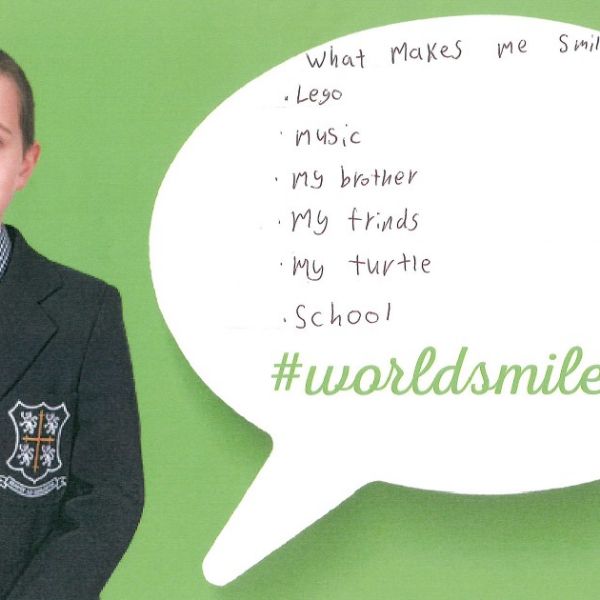 What makes me smil
· Lego
· music
· my brother
· My frinds
· My turtle
· School
#worldsmile